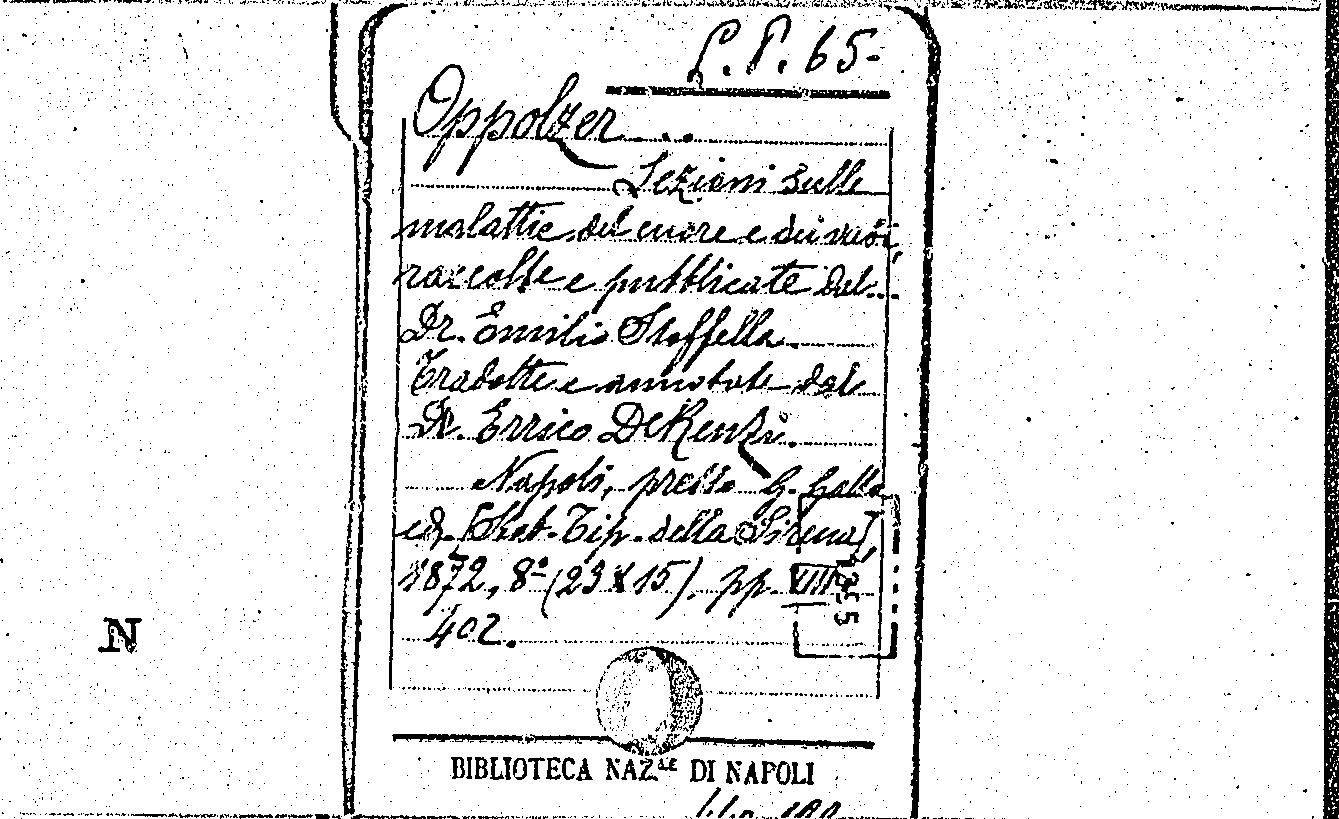 L.P. 65-
Oppolzer...
Lezioni sulle
malattie del cuore e dei vasi,
raccolte e pubblicate dal...
Dr. Emilio Stoffella.
Tradotte e annotate dal
Dr. Errico De Renzi.
Napoli, presso G. Gallo
ed. [Stab. Tip. della Sirena],
1872, 8º (23 X 15). pp. VIII
402.
N
BIBLIOTECA NAZ.LE DI NAPOLI